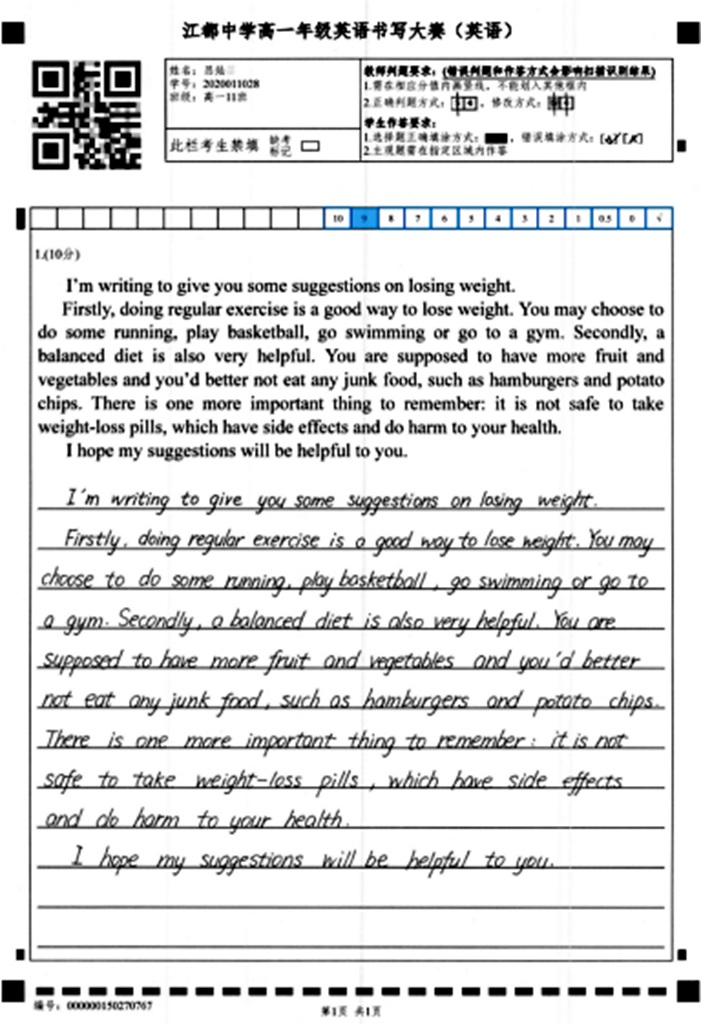 江都中学高一年级英语书写大赛（英语）
姓名：
学号：2020011028
班级：高一11班
此栏考生禁填 缺考标记
教师判题要求：(错误判题和作答方式会影响扫描识别结果)
1.需在相应分值内画竖线，不能划入其他框内
2.正确判题方式： ，修改方式：
学生作答要求：
1.选择题正确填涂方式： ，错误填涂方式：
2.主观题需在指定区域内作答
10 9 8 7 6 5 4 3 2 1 0.5 0 √
1.(10分)
I'm writing to give you some suggestions on losing weight.
Firstly, doing regular exercise is a good way to lose weight. You may choose to
do some running, play basketball, go swimming or go to a gym. Secondly, a
balanced diet is also very helpful. You are supposed to have more fruit and
vegetables and you'd better not eat any junk food, such as hamburgers and potato
chips. There is one more important thing to remember: it is not safe to take
weight-loss pills, which have side effects and do harm to your health.
I hope my suggestions will be helpful to you.
I'm writing to give you some suggestions on losing weight.
Firstly, doing regular exercise is a good way to lose weight. You may
choose to do some running, play basketball, go swimming or go to
a gym. Secondly, a balanced diet is also very helpful. You are
supposed to have more fruit and vegetables and you'd better
not eat any junk food, such as hamburgers and potato chips.
There is one more important thing to remember: it is not
safe to take weight-loss pills, which have side effects
and do harm to your health.
I hope my suggestions will be helpful to you.
编号：000000150270767
第1页 共1页